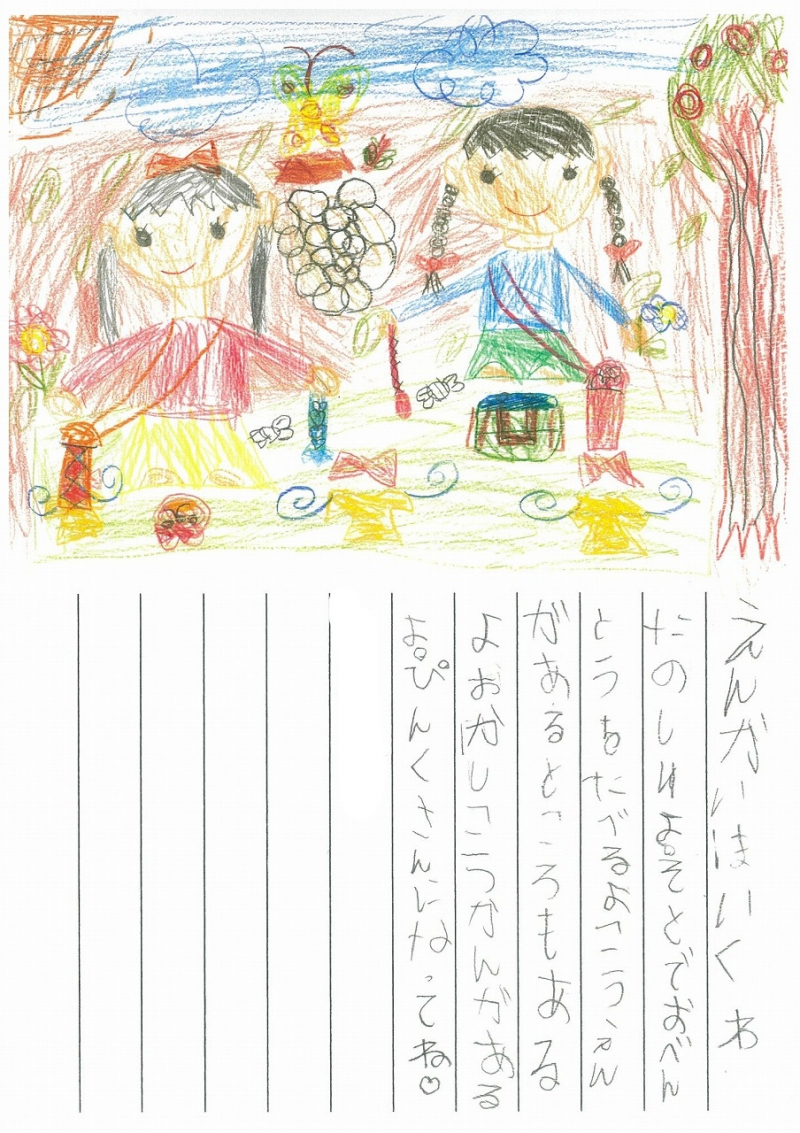 えんがいはいくわ
たのしいよ。そとでおべん
とうおたべるよこうえん
があるところもある
よおかしこうかんがある
よ。ぴんくさんになってね♡